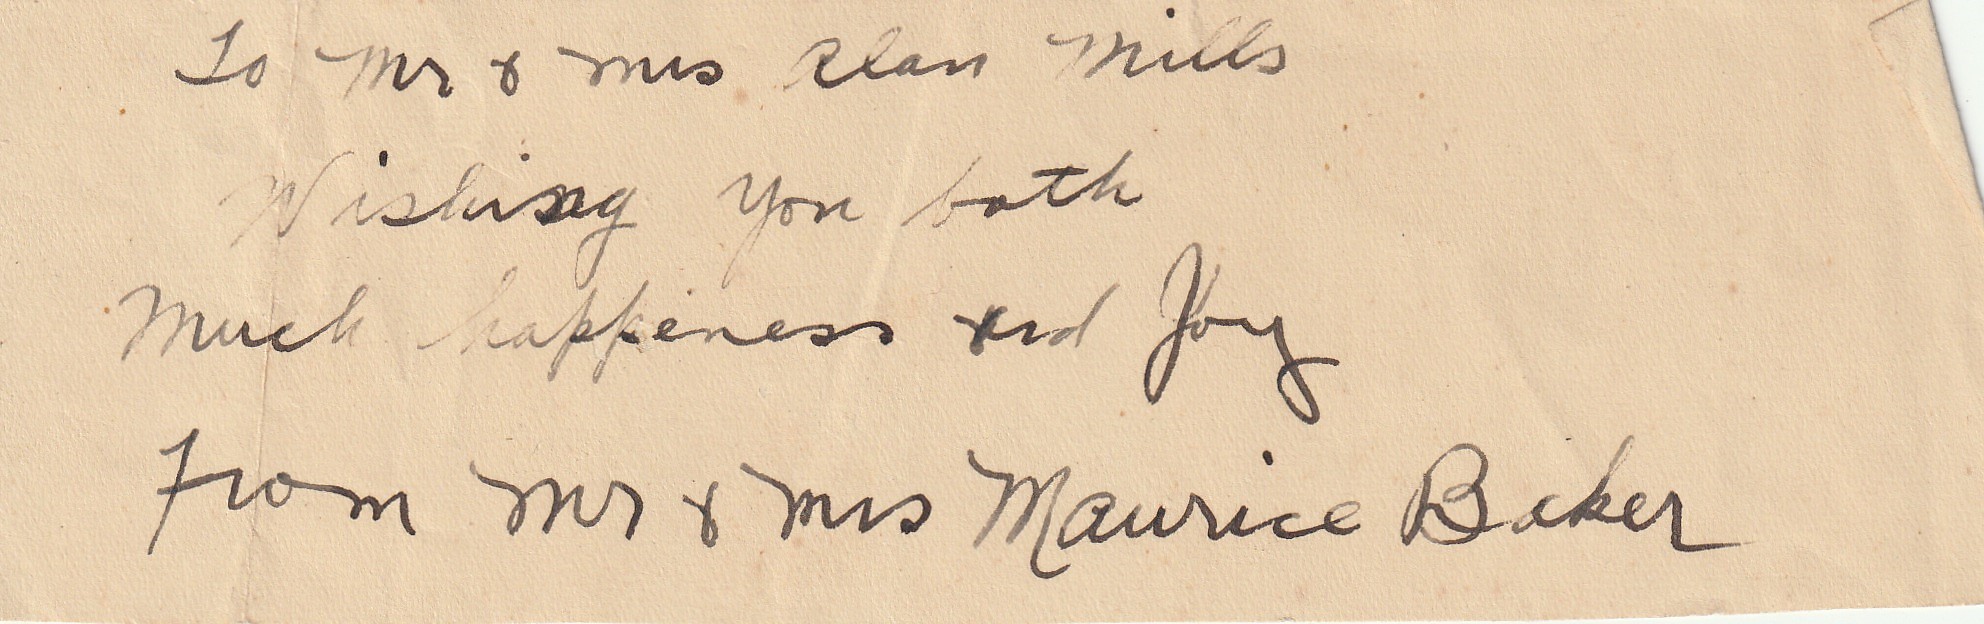 To Mr & Mrs Alan Mills
Wishing you both
Much happiness and Joy
From Mr & Mrs Maurice Baker